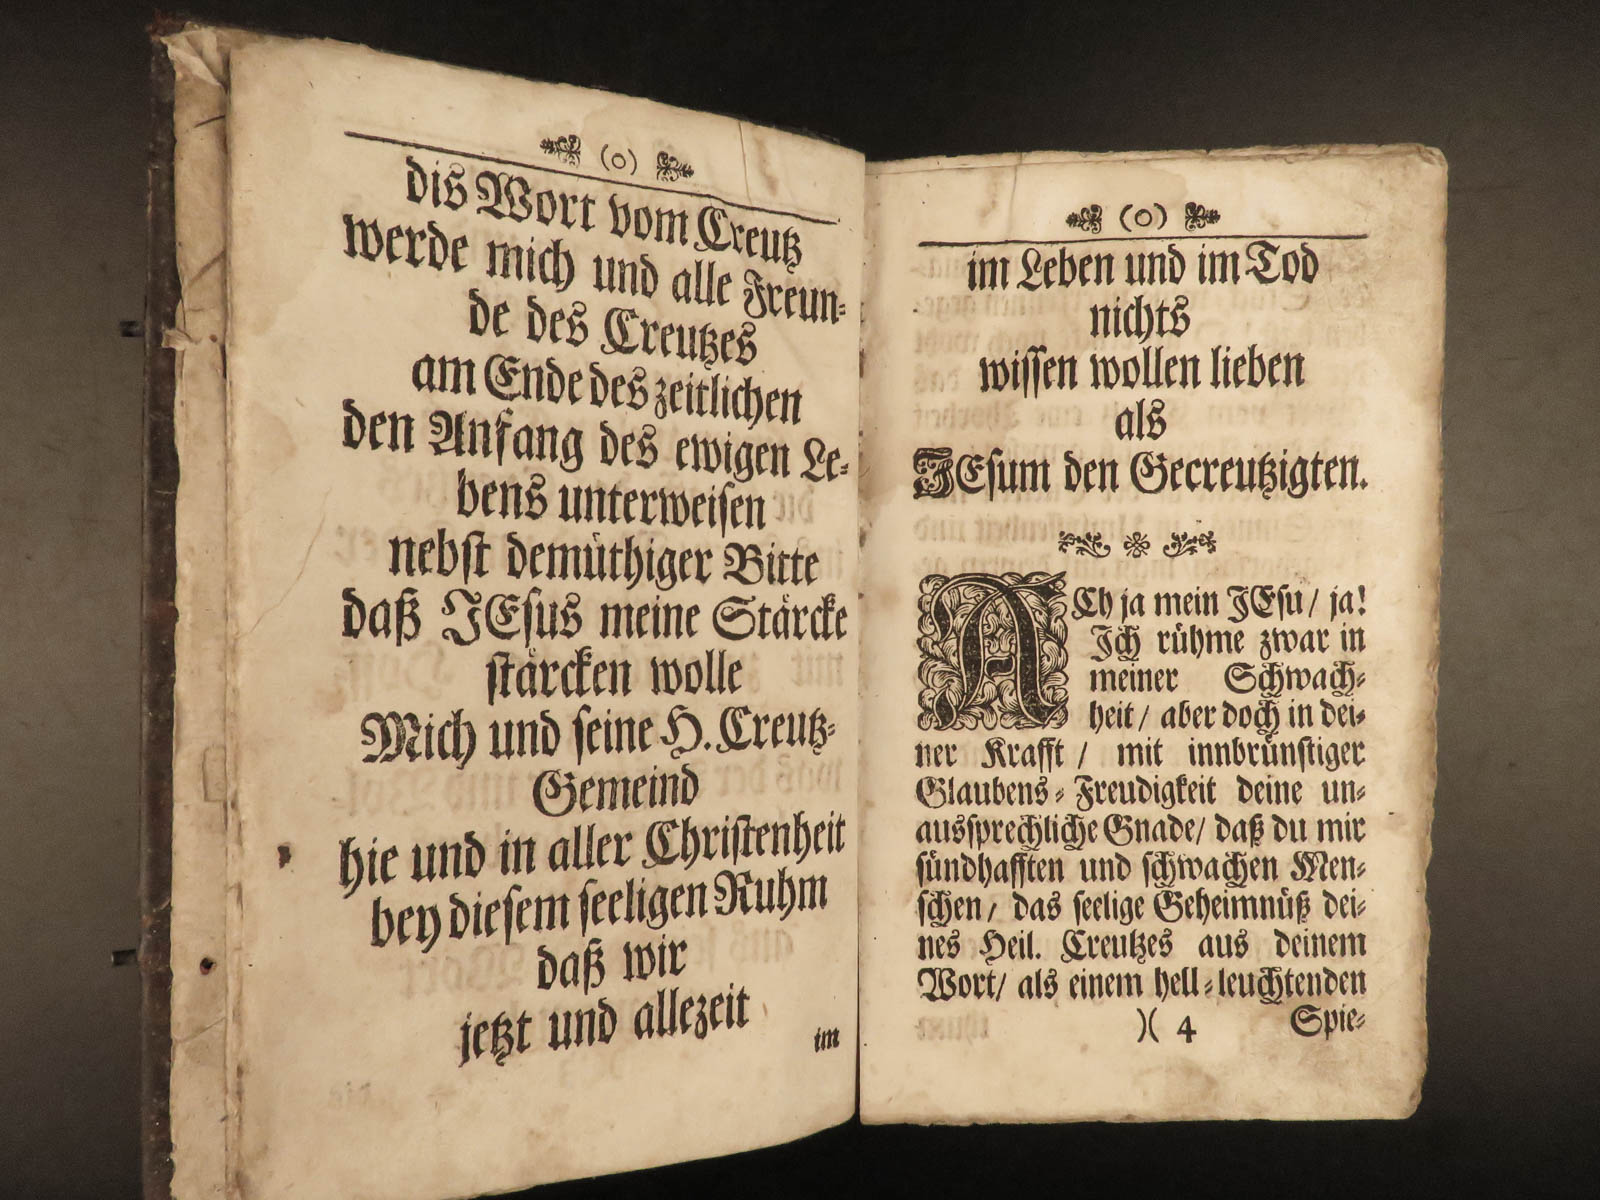 (o)
dis Wort vom Creutz
werde mich und alle Freun-
de des Creutzes
am Ende des zeitlichen
den Anfang des ewigen Le-
bens unterweisen
nebst demüthiger Bitte
daß JEsus meine Stärcke
stärcken wolle
Mich und seine H. Creutz-
Gemeind
hie und in aller Christenheit
bey diesem seeligen Ruhm
daß wir
jetzt und allezeit
im
(o)
im Leben und im Tod
nichts
wissen wollen lieben
als
JEsum den Gecreutzigten.
ACh ja mein JEsu / ja!
Ich rühme zwar in
meiner Schwach-
heit / aber doch in dei-
ner Krafft / mit innbrünstiger
Glaubens-Freudigkeit deine un-
aussprechliche Gnade / daß du mir
sündhafften und schwachen Men-
schen / das seelige Geheimnüß dei-
nes Heil. Creutzes aus deinem
Wort / als einem hell-leuchtenden
)( 4 Spie-